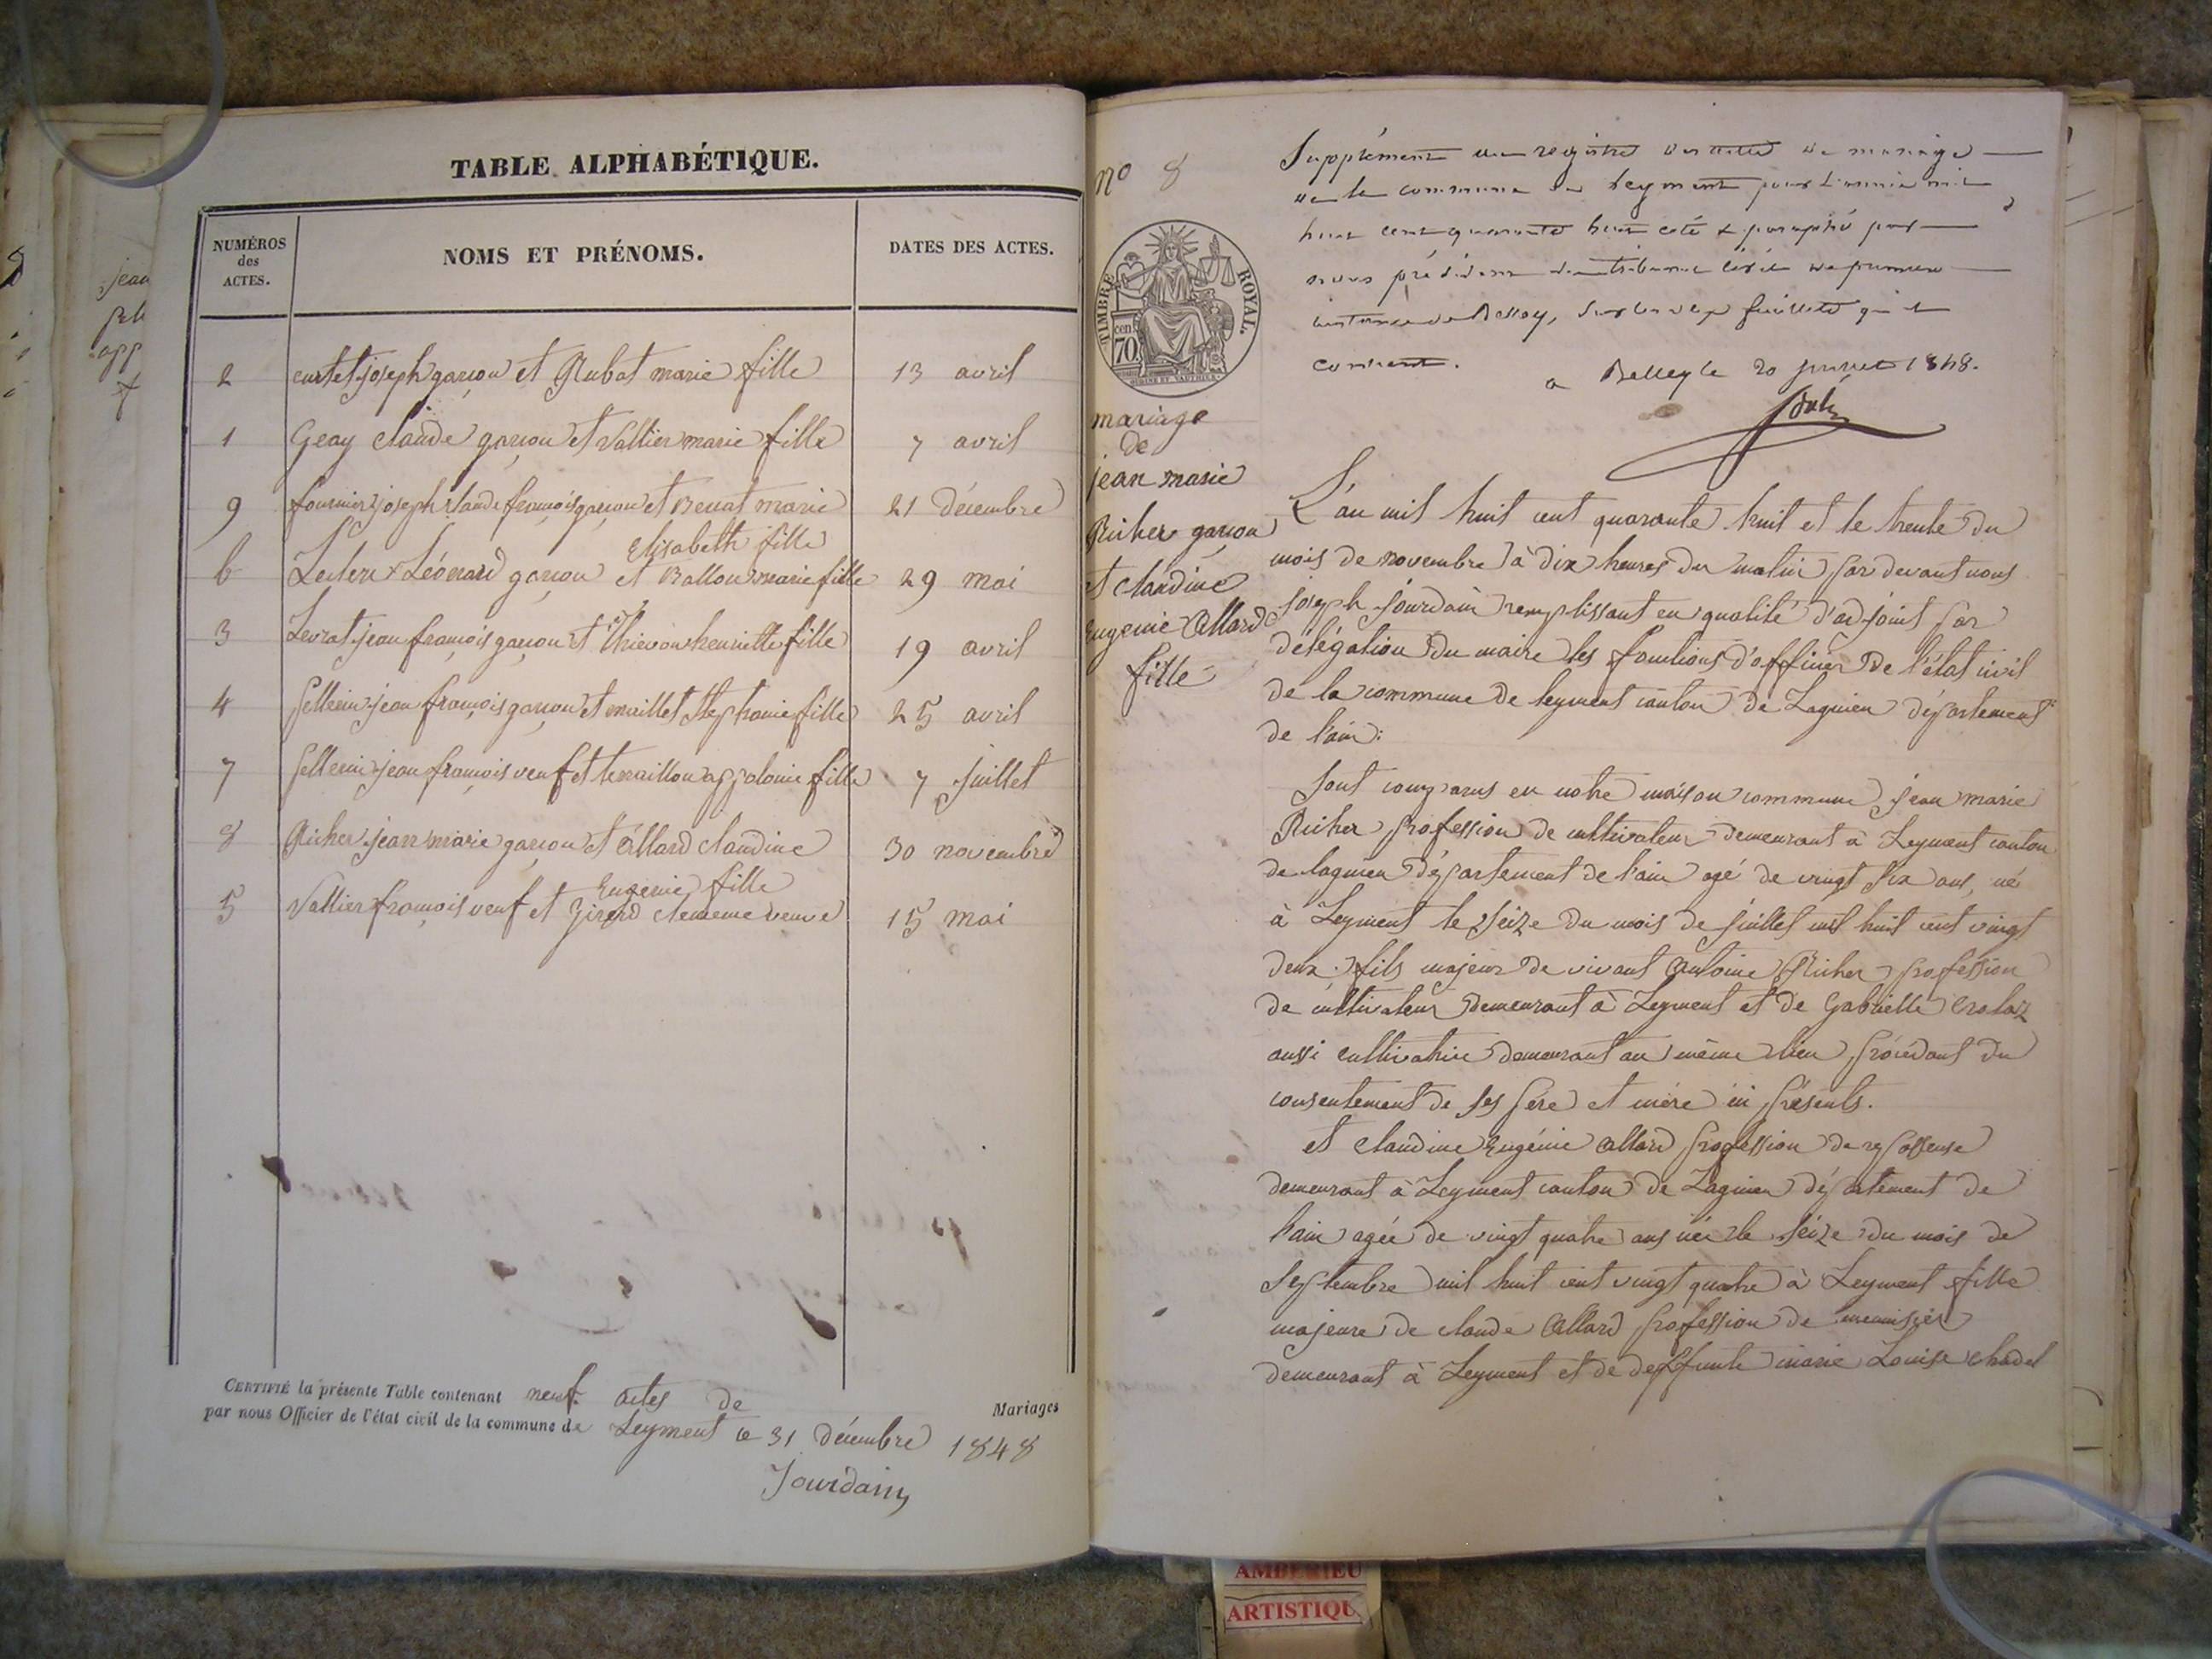 TABLE ALPHABÉTIQUE.
NUMÉROS des ACTES.
NOMS ET PRÉNOMS.
DATES DES ACTES.
2 curtet joseph garcon et Rubat marie fille 13 avril
1 Geay claude garcon et Vallier marie fille 7 avril
9 fournier joseph claude françois garcon et Benat marie 21 décembre
Elisabeth fille
6 Léonard garçon et Ballon marie fille 29 mai
3 Levrat jean françois garçon et henriette fille 19 avril
4 pellerin jean françois garçon et maillet Stephanie fille 25 avril
7 pellerin jean françois veuf et appolonie fille 7 juillet
8 Richer jean marie garcon et Allard claudine 30 novembre
Eugenie fille
5 Vallier françois veuf et Girerd clemence veuve 15 mai
CERTIFIÉ la présente Table contenant neuf actes de Mariages
par nous Officier de l'état civil de la commune de Leyment le 31 décembre 1848
Jourdain
n° 8
TIMBRE ROYAL.
cen
70
mariage
de
jean marie
Richer garcon
et claudine
Eugenie Allard
fille
Supplément au registre des actes de mariage
de la commune de Leyment pour l'année mil
huit cent quarante huit coté & paraphé par
nous président du tribunal civil de première
instance de Belley, sur les deux feuillets qu'il
contient.
a Belley le 20 1848.
L'an mil huit cent quarante huit et le trente du
mois de novembre à dix heures du matin par devant nous
joseph jourdain remplissant en qualité d'adjoint par
délégation du maire les fonctions d'officier de l'état civil
de la commune de leyment canton de Lagnieu département
de l'ain:
Sont comparus en notre maison commune jean marie
Richer profession de cultivateur demeurant à Leyment canton
de lagnieu département de l'ain agé de vingt six ans, né
à Leyment le seize du mois de juillet mil huit cent vingt
deux. fils majeur de vivant antoine Richer profession
de cultivateur demeurant à Leyment et de Gabrielle Crolaz
aussi cultivatrice demeurant au même lieu procédant du
consentement de ses père et mère ici présents.
et claudine Eugénie allard profession de repasseuse
demeurant à Leyment canton de Lagnieu département de
l'ain agée de vingt quatre ans née le seize du mois de
septembre mil huit cent vingt quatre à Leyment fille
majeure de claude Allard profession de menuisier
demeurant à Leyment et de deffunte marie Louise chadel
AMBERIEU
ARTISTIQU